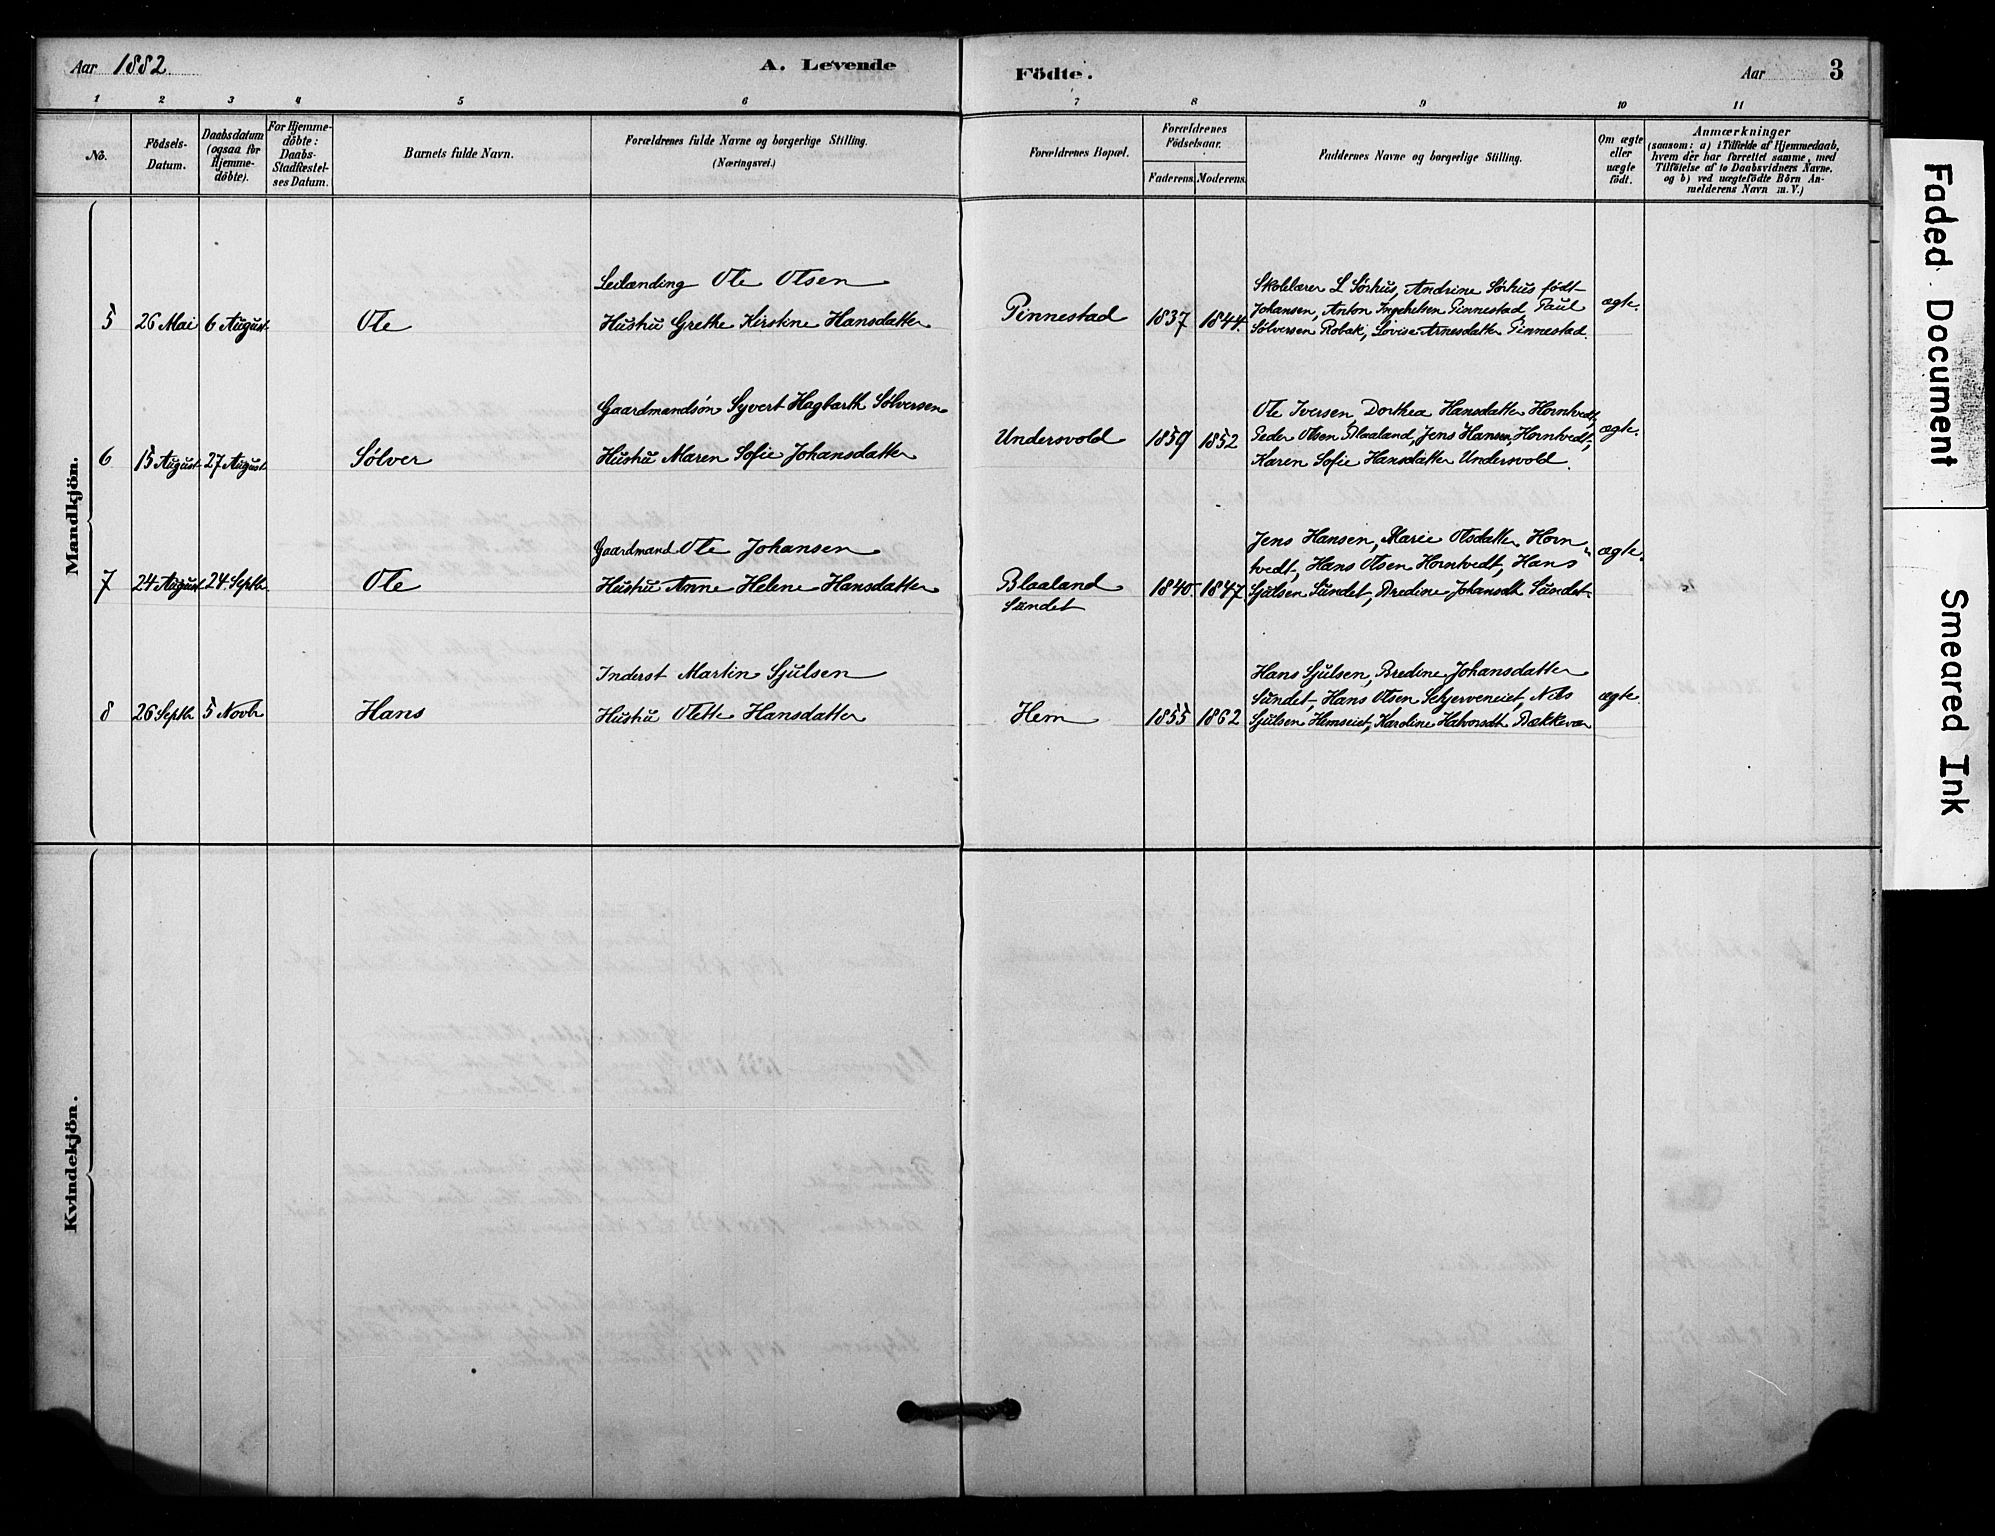 Aar 1882
A. Levende
Födte.
Aar
3
1 2 3 4 5 6 7 8 9 10 11
No.
Födsels-
Datum.
Daabsdatum
(ogsaa for
Hjemme-
döbte).
For Hjemme-
döbte:
Daabs-
Stadfæstel-
ses Datum.
Barnets fulde Navn.
Forældrenes fulde Navne og borgerlige Stilling.
(Næringsvei.)
Forældrenes Bopæl.
Forældrenes
Födselsaar.
Faderens. Moderens.
Faddernes Navne og borgerlige Stilling.
Om ægte
eller
uægte
födt.
Anmærkninger
(saasom: a) i Tilfælde af Hjemmedaab,
hvem der har forrettet samme, med
Tilföielse af to Daabsvidners Navne.
og b) ved uægtefödte Börn An-
melderens Navn m. V.)
Mandkjön.
5 26 Mai 6 August. Ole
Leilænding Ole Olsen
Hustru Grethe Kirstine Hansdatter
Pinnestad 1837 1844.
Skolelærer L Sørhus, Andrine Sørhus født
Johansen, Anton Ingebretsen Pinnestad Paul
Sølversen Robak, Lovise Arnesdatter Pinnestad.
ægte.
6 15 August 27 August Sølver
Gaardmandsøn Syvert Hagbarth Sølversen
Hustru Maren Sofie Johansdatter
Undersvold 1859 1852
Ole Iversen, Dorthea Hansdatter Horntvedt,
Peder Olsen Blaaland, Jens Hansen, Horntvedt,
Karen Sofie Hansdatter Undersvold.
ægte.
7 24 August 24 Septbr. Ole
Gaardmand Ole Johansen
Hustru Anne Helene Hansdatter
Blaaland
Sundet
1840. 1847
Jens Hansen, Marie Olsdatter Horn
tvedt, Hans Olsen Horntvedt, Hans
Sjulsen Sundet, Bredine Johansdt Sundet.
ægte.
8 26 Septbr 5 Novbr Hans
Inderst Martin Sjulsen
Hustru Olette Hansdatter
Hem 1855 1862
Hans Sjulsen, Bredine Johansdatter
Sundet, Hans Olsen Schjerveneiet, Nils
Sjulsen Hemseiet, Karoline Halvorsdt. Bækkevar
ægte.
Kvindekjön.
Faded Document
Smeared Ink